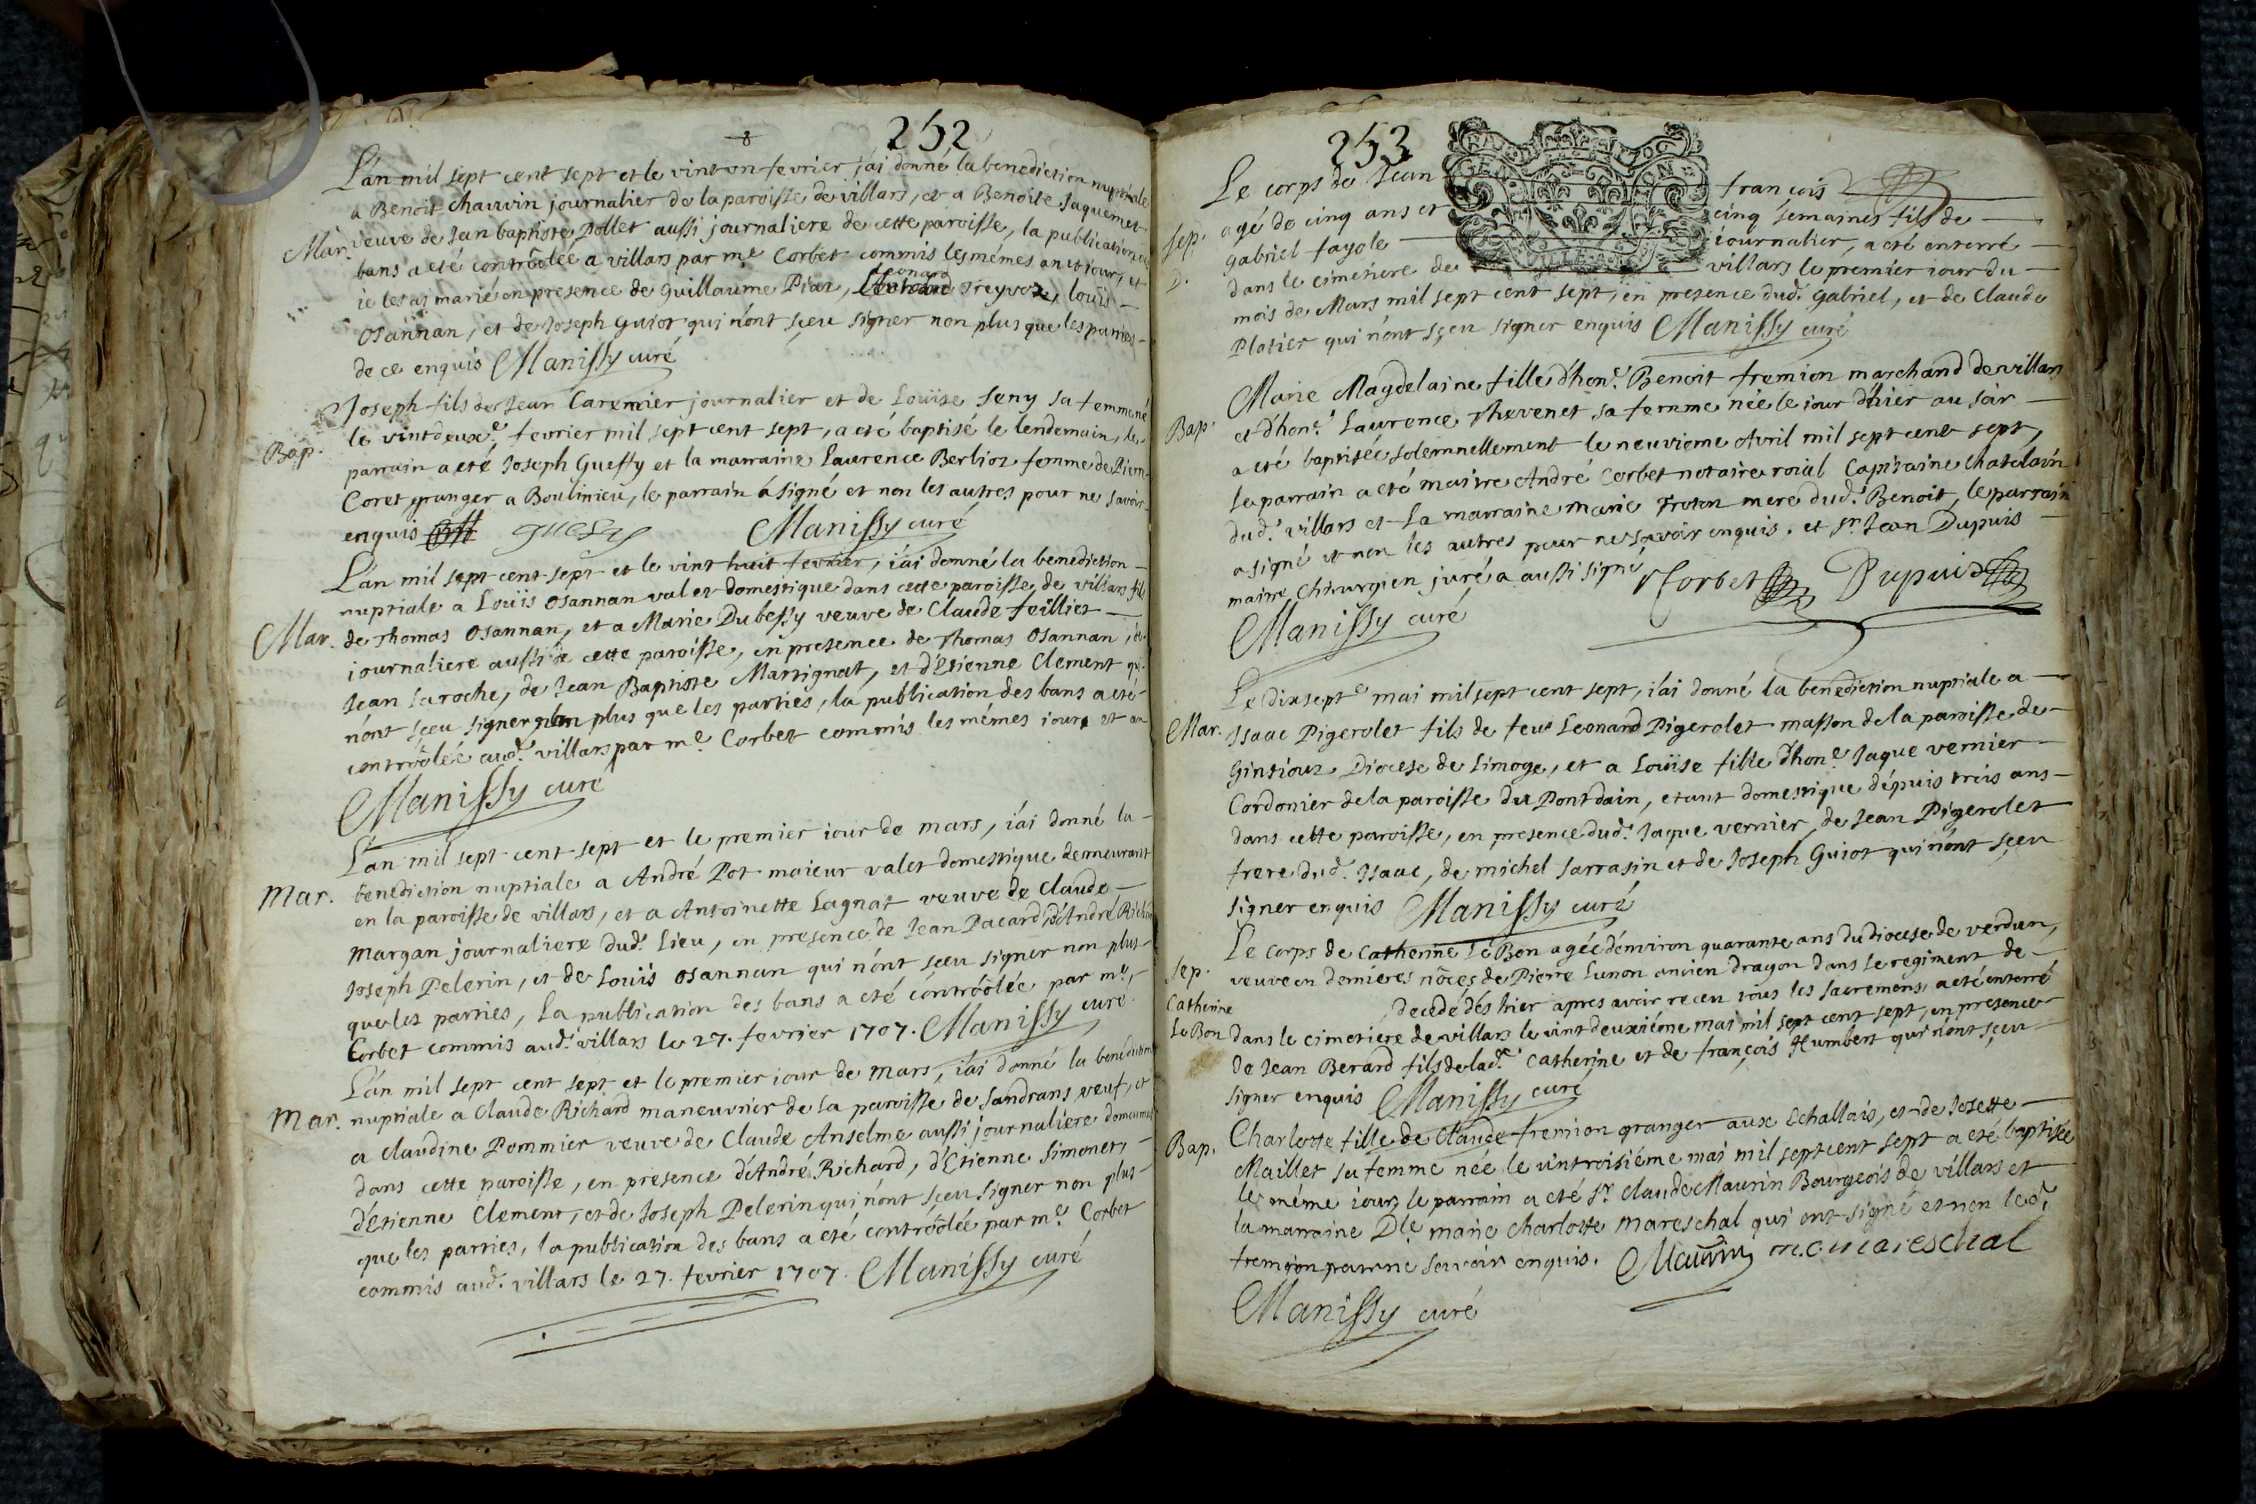 252
L'án mil sept cent sept et le vint en fevrier j'ái donné la benediction nuptiale
a Benoit Chauvin journalier de la paroisse de villars, et a Benoite Jaquemet
Mar. veuve de Jean baptiste Pollet aussi journaliere de cette paroisse, la publication
bans a eté contróolée a villars par me. Corbet commis les mémes an et jour, et
ie les ai marié en presence de Guillaume Piat, Leonard Treyvoz, loüis
Osannan, et de Joseph Guiot qui n'ónt sçeu signer non plus que les parties
de ce enquis Manissy curé
Joseph fils de Jean Caremier journalier et de Loüise Seny sa femme né
Bap. le vint deuxe. fevrier mil sept cent sept, a eté baptisé le lendemain, le
parrain a eté Joseph Gueffy et la marraine Laurence Berlioz femme de Pierre
Coret granger a Boulinieu, le parrain á signé et non les autres pour ne savoir
enquis Manissy curé
L'án mil sept cent sept et le vint huit fevrier, i'ái donné la benediction
nuptiale a Loüis Osannan valet domestique dans cette paroisse de villars fils
Mar. de Thomas Osannan, et a Marie Dubessy veuve de Claude feillier
journaliere aussi de cette paroisse, en presence de Thomas Osannan, de
Jean Laroche, de Jean Baptiste Martignat, et d'Etienne Clement qui
nónt sçeu signer non plus que les parties, la publication des bans a eté
contróolée aud. villars par me. Corbet commis les mémes iour et an
Manissy curé
L'án mil sept cent sept et le premier iour de mars, i'ái donné la
Mar. benediction nuptiale a André Pot maieur valet domestique demeurant
en la paroisse de villars, et a Antoinette Lagnat veuve de Claude
Margan journaliere dud. Lieu, en presence de Jean Pacard, d'André Richard
Joseph Pelerin, et de Louis Osannan qui n'ónt sçeu signer non plus
que les parties, la publication des bans a eté contróolée par me.
Corbet commis aud. villars le 27. fevrier 1707. Manissy curé
L'án mil sept cent sept et le premier iour de Mars, i'ái donné la benediction
Mar. nuptiale a Claude Richard maneuvrier de la paroisse de Sandrans veuf, et
a Claudine Pommier veuve de Claude Anselme aussi journaliere demeurant
dans cette paroisse, en presence d'André Richard, d'Etienne Simonet,
d'Etienne Clement, et de Joseph Pelerin qui n'ónt sçeu signer non plus
que les parties, la publication des bans a eté contróolée par me. Corbet
commis aud. villars le 27. fevrier 1707. Manissy curé
253
Le corps de Jean francois
Sep. agé de cinq ans et cinq semaines fils de
Gabriel fayole iournalier, a eté enterré
D. dans le cimetiere de villars le premier iour du
mois de Mars mil sept cent sept, en presence dud. Gabriel, et de Claude
Platier qui n'ónt sçeu signer enquis Manissy curé
Marie Magdelaine fille d'hone. Benoit fremion marchand de villars
Bap. et d'hone. Laurence Thevenet sa femme née le iour d'hier au soir
a eté baptisée solemnellement le neuvieme Avril mil sept cent sept,
le parrain a eté maitre André Corbet notaire roial Capitaine Chatelain
dud. villars et la marraine marie Troton mere dud. Benoit, le parrain
a signé et non les autres pour ne savoir enquis. et sr. Jean Dupuis
maitre Chirurgien juré a áussi signé Corbet Dupuis
Manissy curé
Le dix septe. mai mil sept cent sept, i'ái donné la benediction nuptiale a
Mar. Isaac Pigerolet fils de feu Leonard Pigerolet masson de la paroisse de
Gintiour Diocese de Limoge, et a Loüise fille d'hone. Jaque vernier
Cordonier de la paroisse du Pontdain, etant domestique dépuis trois ans
dans cette paroisse, en presence dud. Jaque vernier, de Jean Pigerolet
frere dud. Isaac, de michel Sarrasin et de Joseph Guiot qui n'ónt sçeu
signer enquis Manissy curé
Le corps de Catherine Le Bon agée d'énviron quarante ans du diocese de verdun,
Sep. veuve en dernieres nôces de Pierre Lunon ancien dragon dans le regiment de
Catherine decedé dés hier apres avoir receu tous les sacremens, a eté enterré
Le Bon dans le cimetiere de villars le vint deuxiéme mai mil sept cent sept, en presence
de Jean Berard fils de lad. Catherine et de françois Humbert qui n'ónt sçeu
signer enquis Manissy curé
Charlotte fille de Claude fremion granger aux Echallais, et de Josette
Bap. Maillet sa femme née le vint troisiéme mai mil sept cent sept a eté baptisée
le méme iour, le parrain a eté sr. Claude Maurin Bourgeois de villars et
la marraine Dle. marie Charlotte Mareschal qui ont signé et non led.
fremion pour ne savoir enquis. Maurin m. c. mareschal
Manissy curé